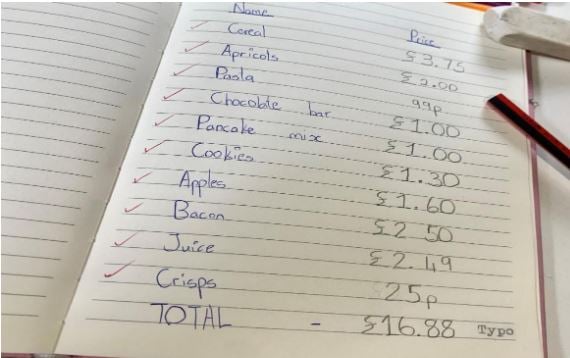 Name Price
Cereal £3.75
Apricots £2.00
Pasta 99p
Chocolate bar £1.00
Pancake mix £1.00
Cookies £1.30
Apples £1.60
Bacon £2 50
Juice £2.49
Crisps 25p
TOTAL - £16.88 Typo